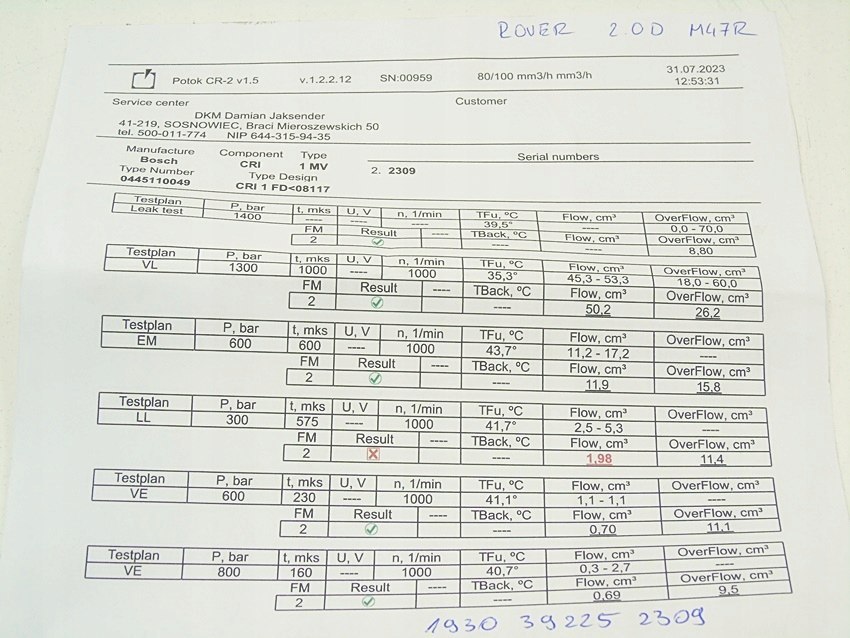 ROVER 2.0D M47R
Potok CR-2 v1.5 v.1.2.2.12 SN:00959 80/100 mm3/h mm3/h 31.07.2023 12:53:31
Service center Customer
DKM Damian Jaksender
41-219, SOSNOWIEC, Braci Mieroszewskich 50
tel. 500-011-774 NIP 644-315-94-35
Manufacture Component Type Serial numbers
Bosch CRI 1 MV 2. 2309
Type Number Type Design
0445110049 CRI 1 FD<08117
Testplan P, bar t, mks U, V n, 1/min TFu, ºC Flow, cm³ OverFlow, cm³
Leak test 1400 ---- ---- ---- 39,5° ---- 0,0 - 70,0
FM Result ---- TBack, ºC Flow, cm³ OverFlow, cm³
2 ---- ---- 8,80
Testplan P, bar t, mks U, V n, 1/min TFu, ºC Flow, cm³ OverFlow, cm³
VL 1300 1000 ---- 1000 35,3° 45,3 - 53,3 18,0 - 60,0
FM Result ---- TBack, ºC Flow, cm³ OverFlow, cm³
2 ---- 50,2 26,2
Testplan P, bar t, mks U, V n, 1/min TFu, ºC Flow, cm³ OverFlow, cm³
EM 600 600 ---- 1000 43,7° 11,2 - 17,2 ----
FM Result ---- TBack, ºC Flow, cm³ OverFlow, cm³
2 ---- 11,9 15,8
Testplan P, bar t, mks U, V n, 1/min TFu, ºC Flow, cm³ OverFlow, cm³
LL 300 575 ---- 1000 41,7° 2,5 - 5,3 ----
FM Result ---- TBack, ºC Flow, cm³ OverFlow, cm³
2 ---- 1,98 11,4
Testplan P, bar t, mks U, V n, 1/min TFu, ºC Flow, cm³ OverFlow, cm³
VE 600 230 ---- 1000 41,1° 1,1 - 1,1 ----
FM Result ---- TBack, ºC Flow, cm³ OverFlow, cm³
2 ---- 0,70 11,1
Testplan P, bar t, mks U, V n, 1/min TFu, ºC Flow, cm³ OverFlow, cm³
VE 800 160 ---- 1000 40,7° 0,3 - 2,7 ----
FM Result ---- TBack, ºC Flow, cm³ OverFlow, cm³
2 ---- 0,69 9,5
1930 39225 2309